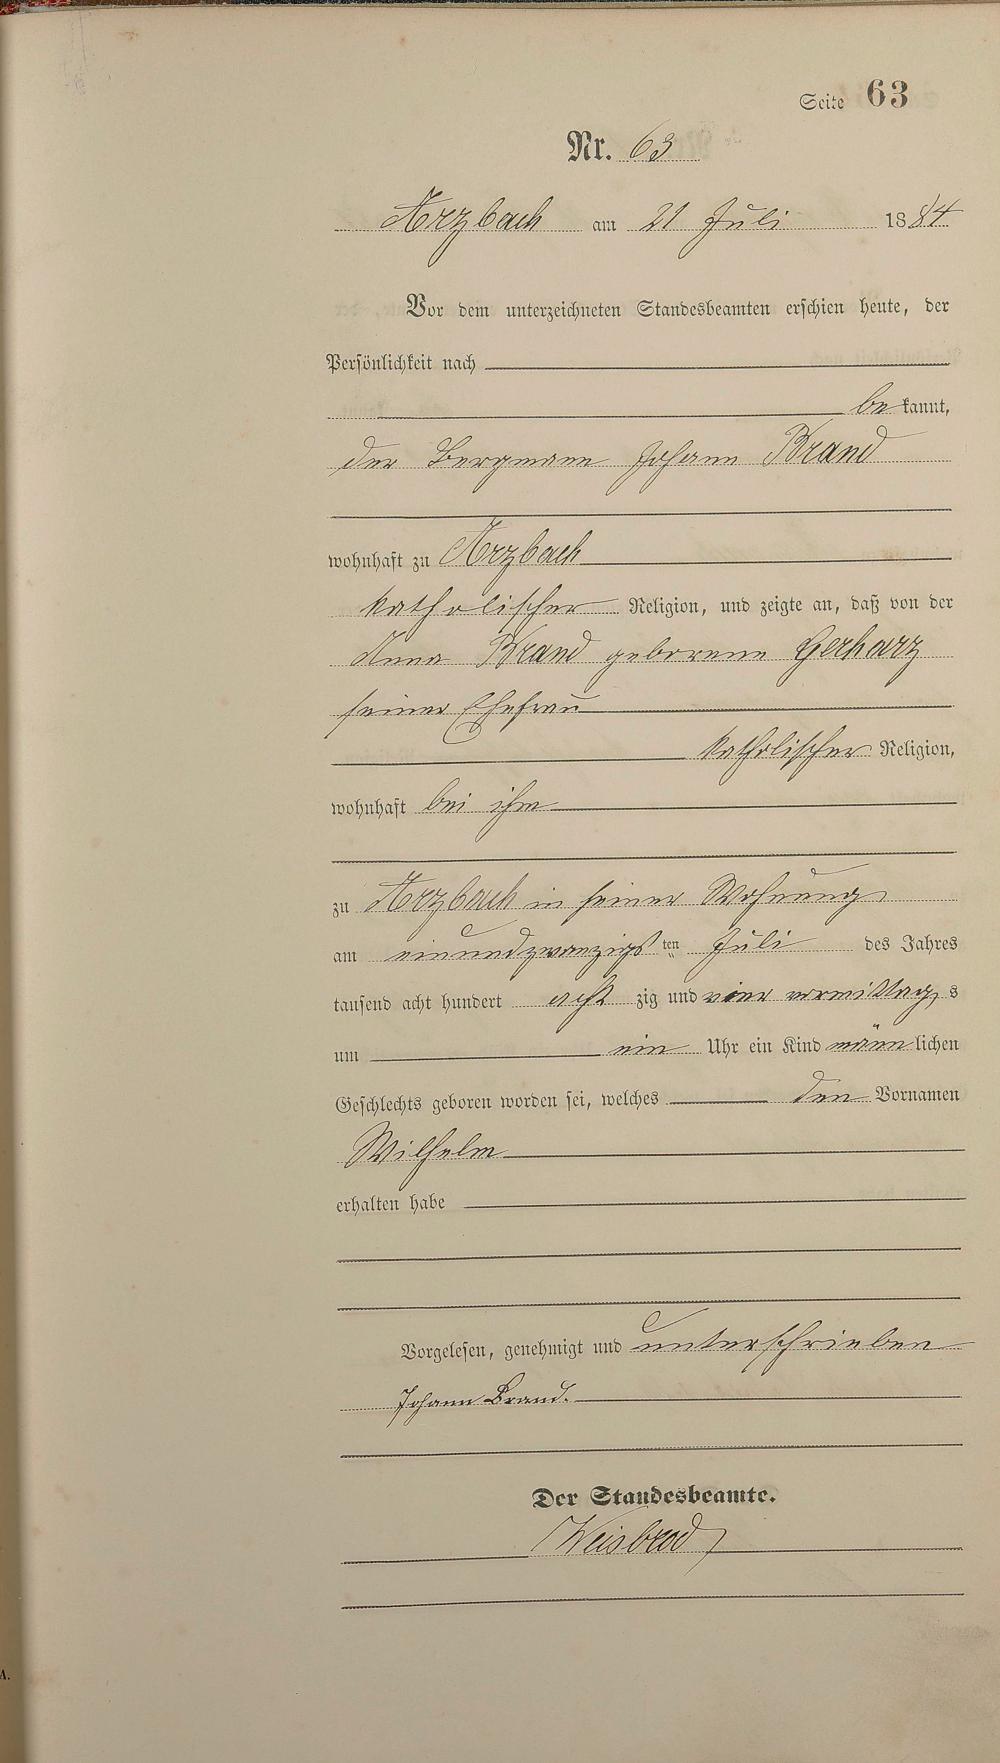 Seite 63
Nr. 63
Arzbach am 21 Juli 1884
Vor dem unterzeichneten Standesbeamten erschien heute, der
Persönlichkeit nach
be kannt,
der Bergmann Johann Brand
wohnhaft zu Arzbach
katholischer Religion, und zeigte an, daß von der
Anna Brand geborene Gerharz
seiner Ehefrau
katholischer Religion,
wohnhaft bei ihm
zu Arzbach in seiner Wohnung
am einundzwanzigs ten Juli des Jahres
tausend acht hundert acht zig und vier vormittag s
um ein Uhr ein Kind männ lichen
Geschlechts geboren worden sei, welches den Vornamen
Wilhelm
erhalten habe
Vorgelesen, genehmigt und unterschrieben
Johann Brand.
Der Standesbeamte.
Weisbrod
A.